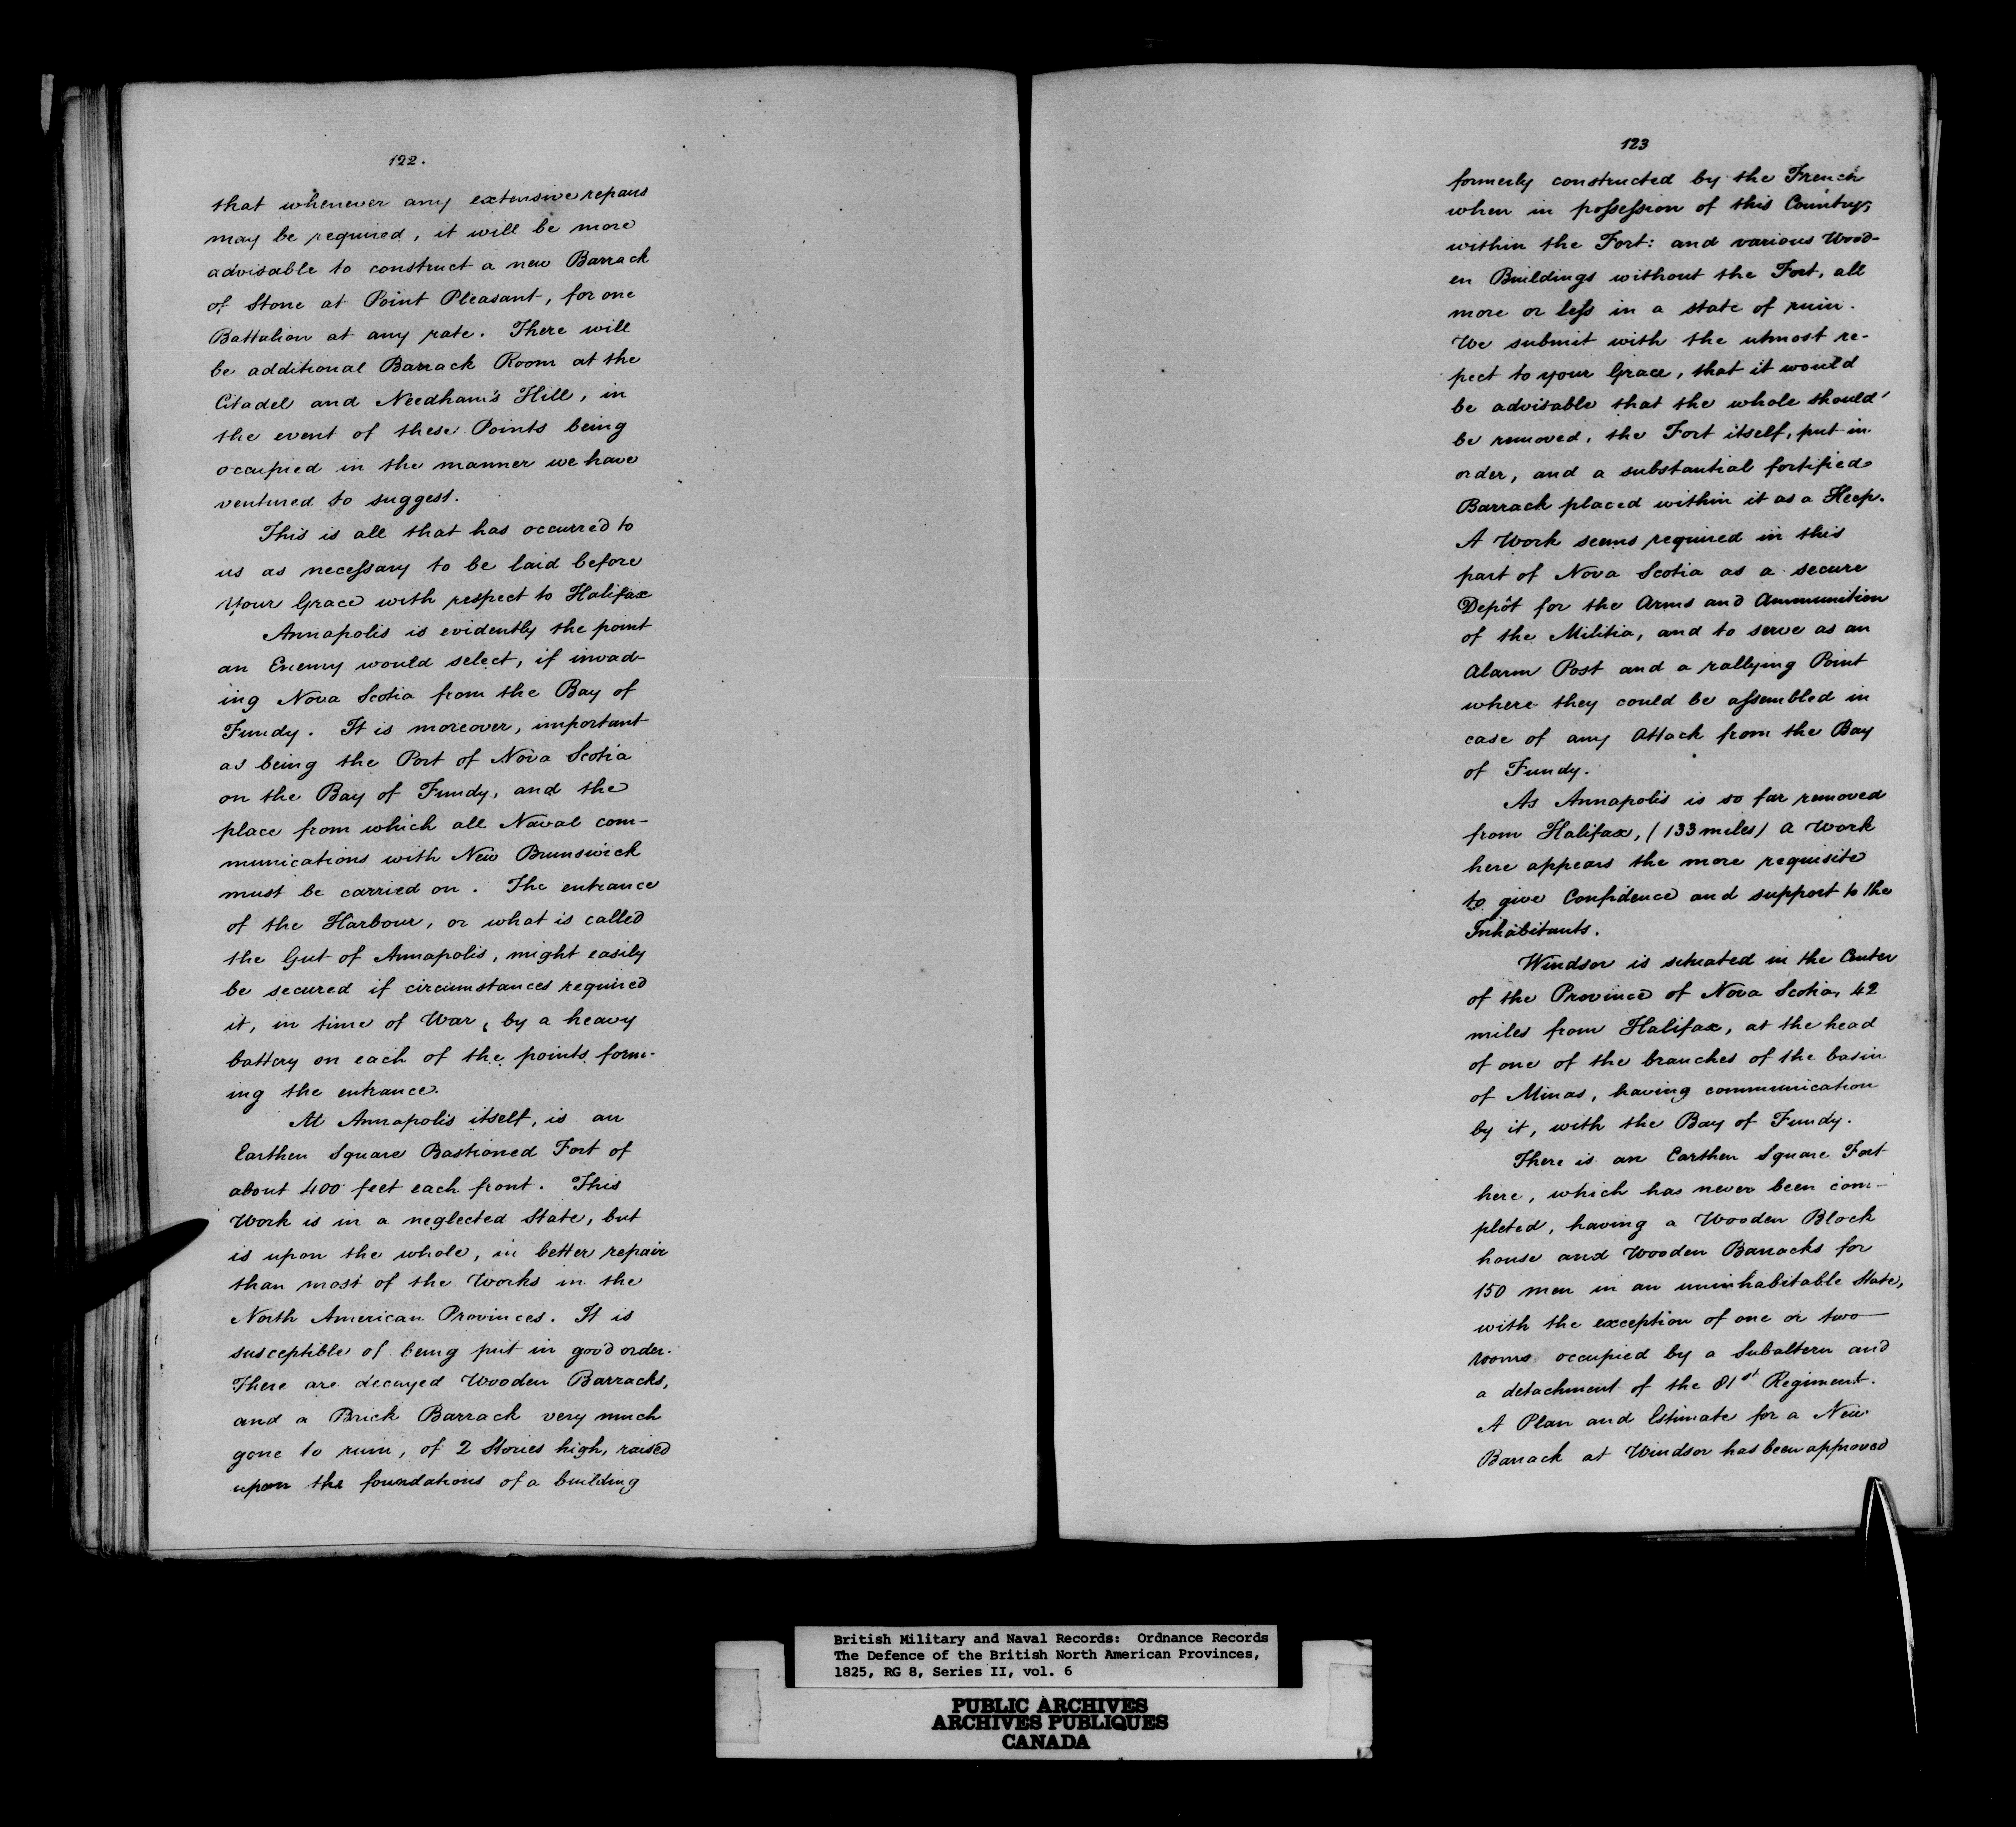 122.
that whenever any extensive repairs
may be required, it will be more
advisable to construct a new Barrack
of Stone at Point Pleasant, for one
Battalion at any rate. There will
be additional Barrack Room at the
Citadel and Needham's Hill, in
the event of these Points being
occupied in the manner we have
ventured to suggest.
This is all that has occurred to
us as necessary to be laid before
Your Grace with respect to Halifax
Annapolis is evidently the point
an Enemy would select, if invad-
ing Nova Scotia from the Bay of
Fundy. It is moreover, important
as being the Port of Nova Scotia
on the Bay of Fundy, and the
place from which all Naval com-
munications with New Brunswick
must be carried on. The entrance
of the Harbour, or what is called
the Gut of Annapolis, might easily
be secured if circumstances required
it, in time of War, by a heavy
battery on each of the points form-
ing the entrance.
At Annapolis itself, is an
Earthen Square Bastioned Fort of
about 400 feet each front. This
Work is in a neglected State, but
is upon the whole, in better repair
than most of the Works in the
North American Provinces. It is
susceptible of being put in good order.
There are decayed Wooden Barracks,
and a Brick Barrack very much
gone to ruin, of 2 Stories high, raised
upon the foundations of a building
123
formerly constructed by the French
when in possession of this Country,
within the Fort: and various Wood-
en Buildings without the Fort, all
more or less in a state of ruin.
We submit with the utmost re-
pect to your Grace, that it would
be advisable that the whole should
be removed, the Fort itself, put in
order, and a substantial fortified
Barrack placed within it as a Keep.
A Work seems required in this
part of Nova Scotia as a secure
Depôt for the Arms and Ammunition
of the Militia, and to serve as an
Alarm Post and a rallying Point
where they could be assembled in
case of any Attack from the Bay
of Fundy.
As Annapolis is so far removed
from Halifax, (133 miles) a Work
here appears the more requisite
to give Confidence and support to the
Inhabitants.
Windsor is situated in the Center
of the Province of Nova Scotia, 42
miles from Halifax, at the head
of one of the branches of the basin
of Minas, having communication
by it, with the Bay of Fundy.
There is an Earthen Square Fort
here, which has never been com-
pleted, having a Wooden Block
house and Wooden Barracks for
150 men in an uninhabitable State,
with the exception of one or two
rooms occupied by a Subaltern and
a detachment of the 81st Regiment.
A Plan and Estimate for a New
Barrack at Windsor has been approved
British Military and Naval Records: Ordnance Records
The Defence of the British North American Provinces,
1825, RG 8, Series II, vol. 6
PUBLIC ARCHIVES
ARCHIVES PUBLIQUES
CANADA